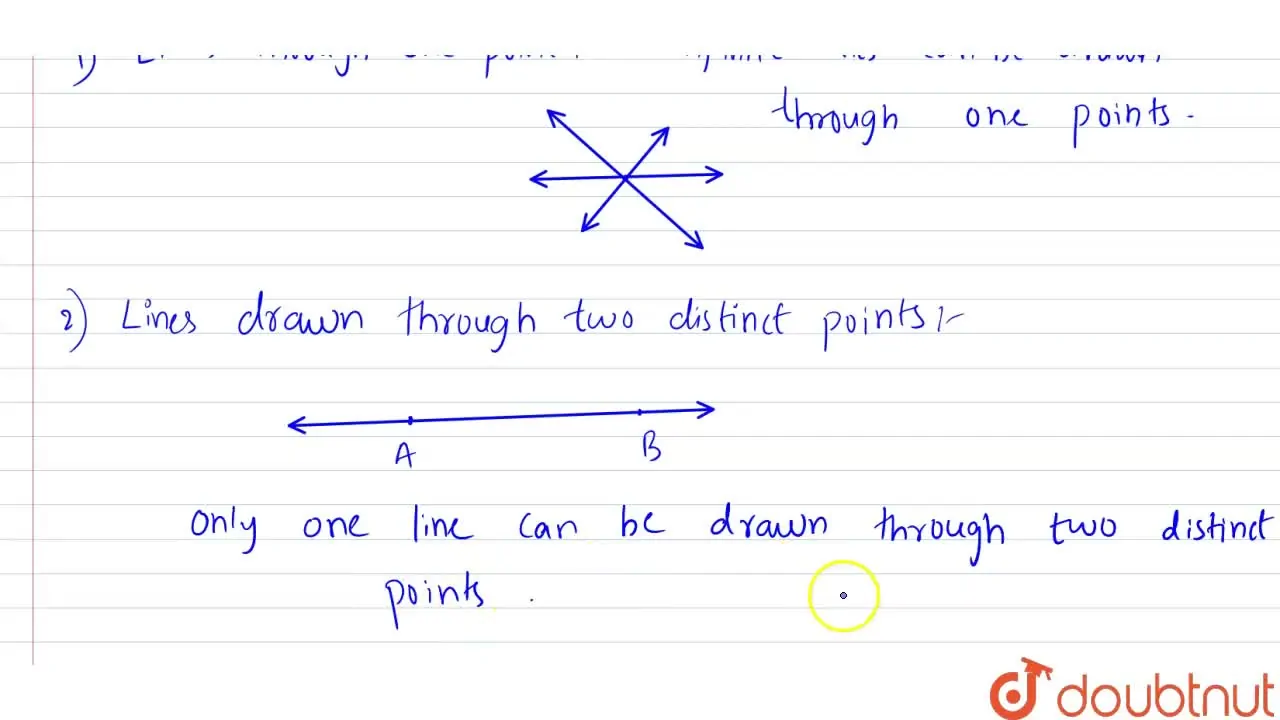 1) through one point
through one points.
2) Lines drawn through two distinct points :-
A B
Only one line can be drawn through two distinct
points.
doubtnut